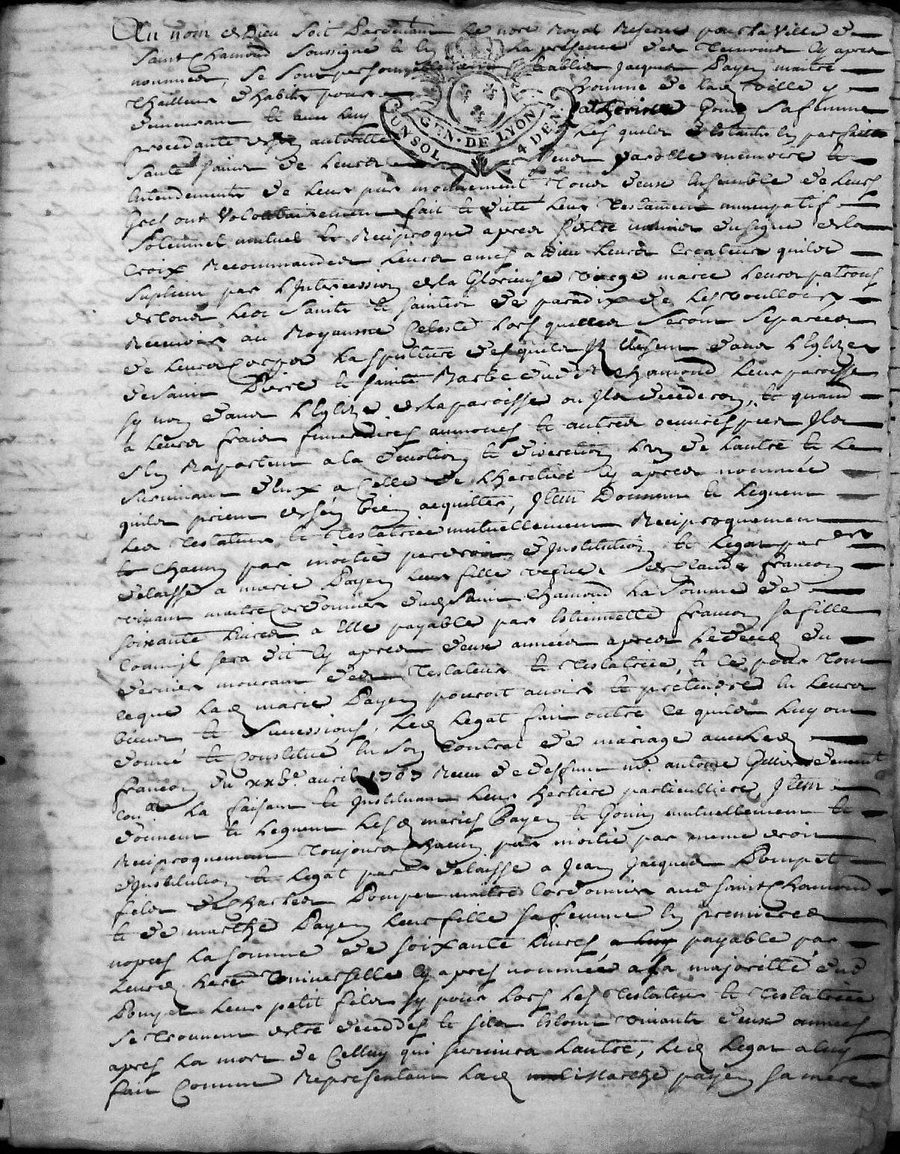 Au nom de Dieu soit Pardevant Le no.re Royal Reservé pour la Ville de
Saint Chamond soussigné & En La presence des Temoins cy apres
nommes, se sont personnellement Establis Jacques Payen maitre
Tailleur d'habits pour homme de lad. Ville y
demeurant & avec luy Catherine Gonin sa femme
procedante de son autorité Lesquels Estants En parfaite
santé saine de Leurs veue parolle memoire &
Entendements de Leur pur mouvement Tous deux Ensemble de Leurs
grés ont Volontairement fait & dicté Leur Testament nuncupatif
solennel mutuel & Reciproque apres s'estre munis du signe de la
croix Recommandés Leurs ames a Dieu Leurs Createur quils
suplient par L'Intercession de la Glorieuse Vierge marie Leurs patrons
& tous Les saints & saintes de paradix de Les vouloir
Recevoir au Royaume Celeste Lors quelles seront separées
de Leurs Corps La sepulture desquels Ils Elisent dans L'Eglize
de saint Pierre & sainte Barbe dud. st Chamond Leur paroisse
sy non dans L'Eglize de la paroisse ou Ils decederont, & quand
a Leurs frais funeraires aumones & autres oeuvres pies Ils
s'En Raportent a la devotion & discretion L'un de Lautre & Le
survivant d'Eux a Celle de L'heritiere cy apres nommée
quils prient de s'En bien acquitter, Item Donnent & Leguent
Les Testateur & Testatrice mutuellement Reciproquement
& Chacun par moitié par droit d'Institution & Legat par Eux
delaissé a marie Payen Leur fille veufve de Claude Francon
vivant maitre Cordonnier dud. Saint Chamond La somme de
soixante Livres a Elle payable par Estiennette Francon sa fille
Comm'il sera dit cy apres deux années apres Le deces du
dernier mourant des Testateur & Testatrice, & ce pour Tout
ce que Lad. marie Payen pourroit avoir & prétendre En Leurs
biens & successions, Led. Legat fait outre ce quils Luy ont
donné & Constitué En son Contrat de mariage avec led.
Francon du xxbe. avril 1707 Receu de deffunt me. antoine
Con. La faisant & Instituant Leur heritiere particulliere, Item
donnent & Leguent Lesd. mariés Payen & Gonin mutuellement &
Reciproquement Toujours Chacun par moitié par meme droit
d'Institution & Legat par Eux delaissé a Jean Jacques Pompet
fils de Charles Pompet maitre Cordonnier aud. saint Chamond
& de marthe Payen Leur fille sa femme En premieres
nopces La somme de soixante Livres payable par
Leurd. herit. Universelle cy apres nommée a sa majorité dud.
Pompet Leur petit fils sy pour Lors Les Testateur & Testatrice
se Trouvent estre decedés & silz Estoint vivants deux années
apres La mort de Celluy qui survivra Lautre, Led. Legat a luy
fait Comme Representant Lad. marthe payen sa mere